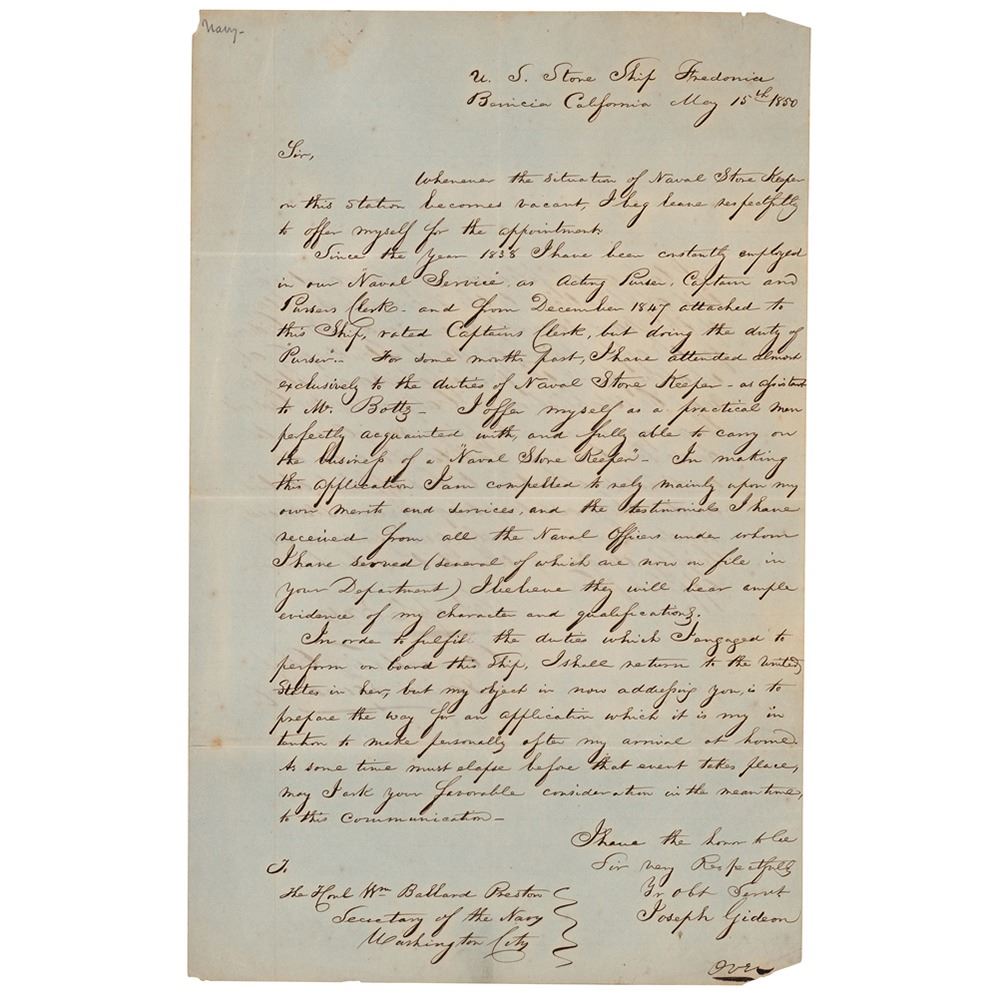 Navy-
U. S. Store Ship Fredonia
Benicia California May 15th 1850
Sir,
Whenever the situation of Naval Store Keeper
on this Station becomes vacant, I beg leave respectfully
to offer myself for the appointment.
Since the year 1838 I have been constantly employed
in our Naval Service, as Acting Purser, Captain and
Pursers Clerk - and from December 1847 attached to
this Ship, rated Captains Clerk, but doing the duty of
"Purser".- For some months past, I have attended almost
exclusively to the duties of Naval Store Keeper - as assistant
to Mr. Botts - I offer myself as a practical man
perfectly acquainted with, and fully able to carry on
the business of a "Naval Store Keeper" - In making
this application I am compelled to rely mainly upon my
own merits and services, and the testimonials I have
received from all the Naval Officers under whom
I have served (several of which are now on file in
your Department) I believe they will bear ample
evidence of my character and qualifications.
In order to fulfill the duties which I engaged to
perform on board this Ship, I shall return to the United
States in her, but my object in now addressing you, is to
prepare the way for an application which it is my in
tention to make personally after my arrival at home.
As some time must elapse before that event takes place,
may I ask your favorable consideration in the mean time,
to this communication -
I have the honor to be
Sir very Respectfully
Yr obt Servt
Joseph Gideon
To
The Honl Wm Ballard Preston
Secretary of the Navy
Washington City
Over